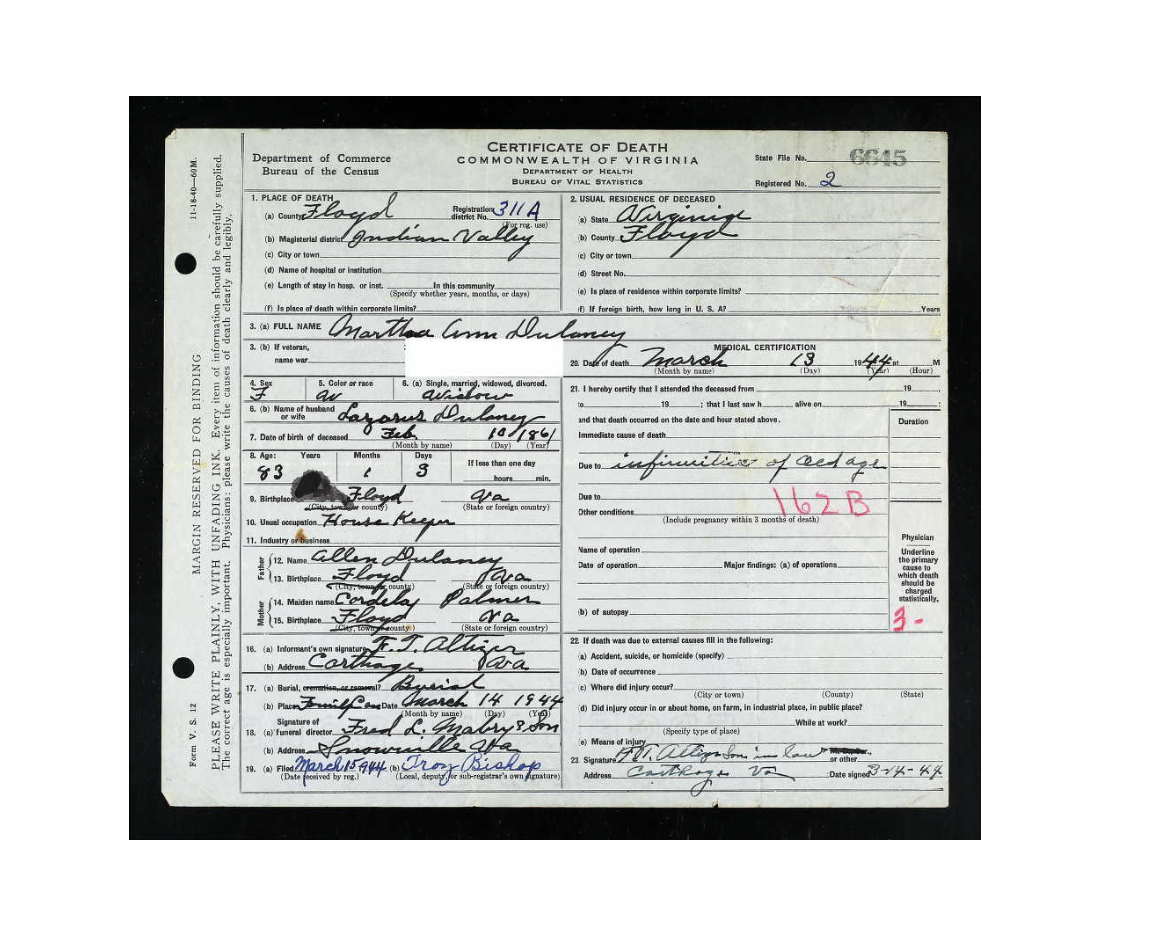 CERTIFICATE OF DEATH
COMMONWEALTH OF VIRGINIA
DEPARTMENT OF HEALTH
BUREAU OF VITAL STATISTICS
Department of Commerce
Bureau of the Census
State File No. 6645
Registered No. 2
11-18-40—60M.
MARGIN RESERVED FOR BINDING
PLEASE WRITE PLAINLY, WITH UNFADING INK. Every item of information should be carefully supplied.
The correct age is especially important. Physicians: please write the causes of death clearly and legibly.
Form V. S. 12
1. PLACE OF DEATH
(a) County Floyd Registration district No. 311A
(For reg. use)
(b) Magisterial district Indian Valley
(c) City or town
(d) Name of hospital or institution
(e) Length of stay in hosp. or inst. In this community
(Specify whether years, months, or days)
(f) Is place of death within corporate limits?
2. USUAL RESIDENCE OF DECEASED
(a) State Virginia
(b) County Floyd
(c) City or town
(d) Street No.
(e) Is place of residence within corporate limits?
(f) If foreign birth, how long in U. S. A? Years
3. (a) FULL NAME Martha Ann Dulaney
3. (b) If veteran,
name war
4. Sex 5. Color or race 6. (a) Single, married, widowed, divorced.
F W Widow
6. (b) Name of husband
or wife Lazarus Dulaney
7. Date of birth of deceased Feb 10 1861
(Month by name) (Day) (Year)
8. Age: Years Months Days If less than one day
83 1 3 hours min.
9. Birthplace Floyd Va
(City, town or county) (State or foreign country)
10. Usual occupation House Keeper
11. Industry or business
Father
12. Name Allen Dulaney
13. Birthplace Floyd Va
(City, town or county) (State or foreign country)
Mother
14. Maiden name Cordela Palmer
15. Birthplace Floyd Va
(City, town or county) (State or foreign country)
16. (a) Informant's own signature F. T. Altizer
(b) Address Carthage Va
17. (a) Burial, cremation, or removal? Burial
(b) Place Family Cem Date March 14 1944
(Month by name) (Day) (Year)
18. Signature of
(a) funeral director Fred L. Mabry & Son
(b) Address Snowville Va
19. (a) Filed March 15 1944 (b) Troy Bishop
(Date received by reg.) (Local, deputy, or sub-registrar's own signature)
MEDICAL CERTIFICATION
20. Date of death March 13 1944 at M
(Month by name) (Day) (Year) (Hour)
21. I hereby certify that I attended the deceased from 19
to 19 ; that I last saw h alive on 19 ;
and that death occurred on the date and hour stated above. Duration
Immediate cause of death
Due to infirmities of old age
Due to
162B
Other conditions
(Include pregnancy within 3 months of death)
Name of operation
Date of operation Major findings: (a) of operations
(b) of autopsy
Physician
Underline
the primary
cause to
which death
should be
charged
statistically.
3-
22. If death was due to external causes fill in the following:
(a) Accident, suicide, or homicide (specify)
(b) Date of occurrence
(c) Where did injury occur?
(City or town) (County) (State)
(d) Did injury occur in or about home, on farm, in industrial place, in public place?
While at work?
(Specify type of place)
(e) Means of injury
23. Signature F. T. Altizer Son in law or other
Address Carthage Va Date signed 3-14-44